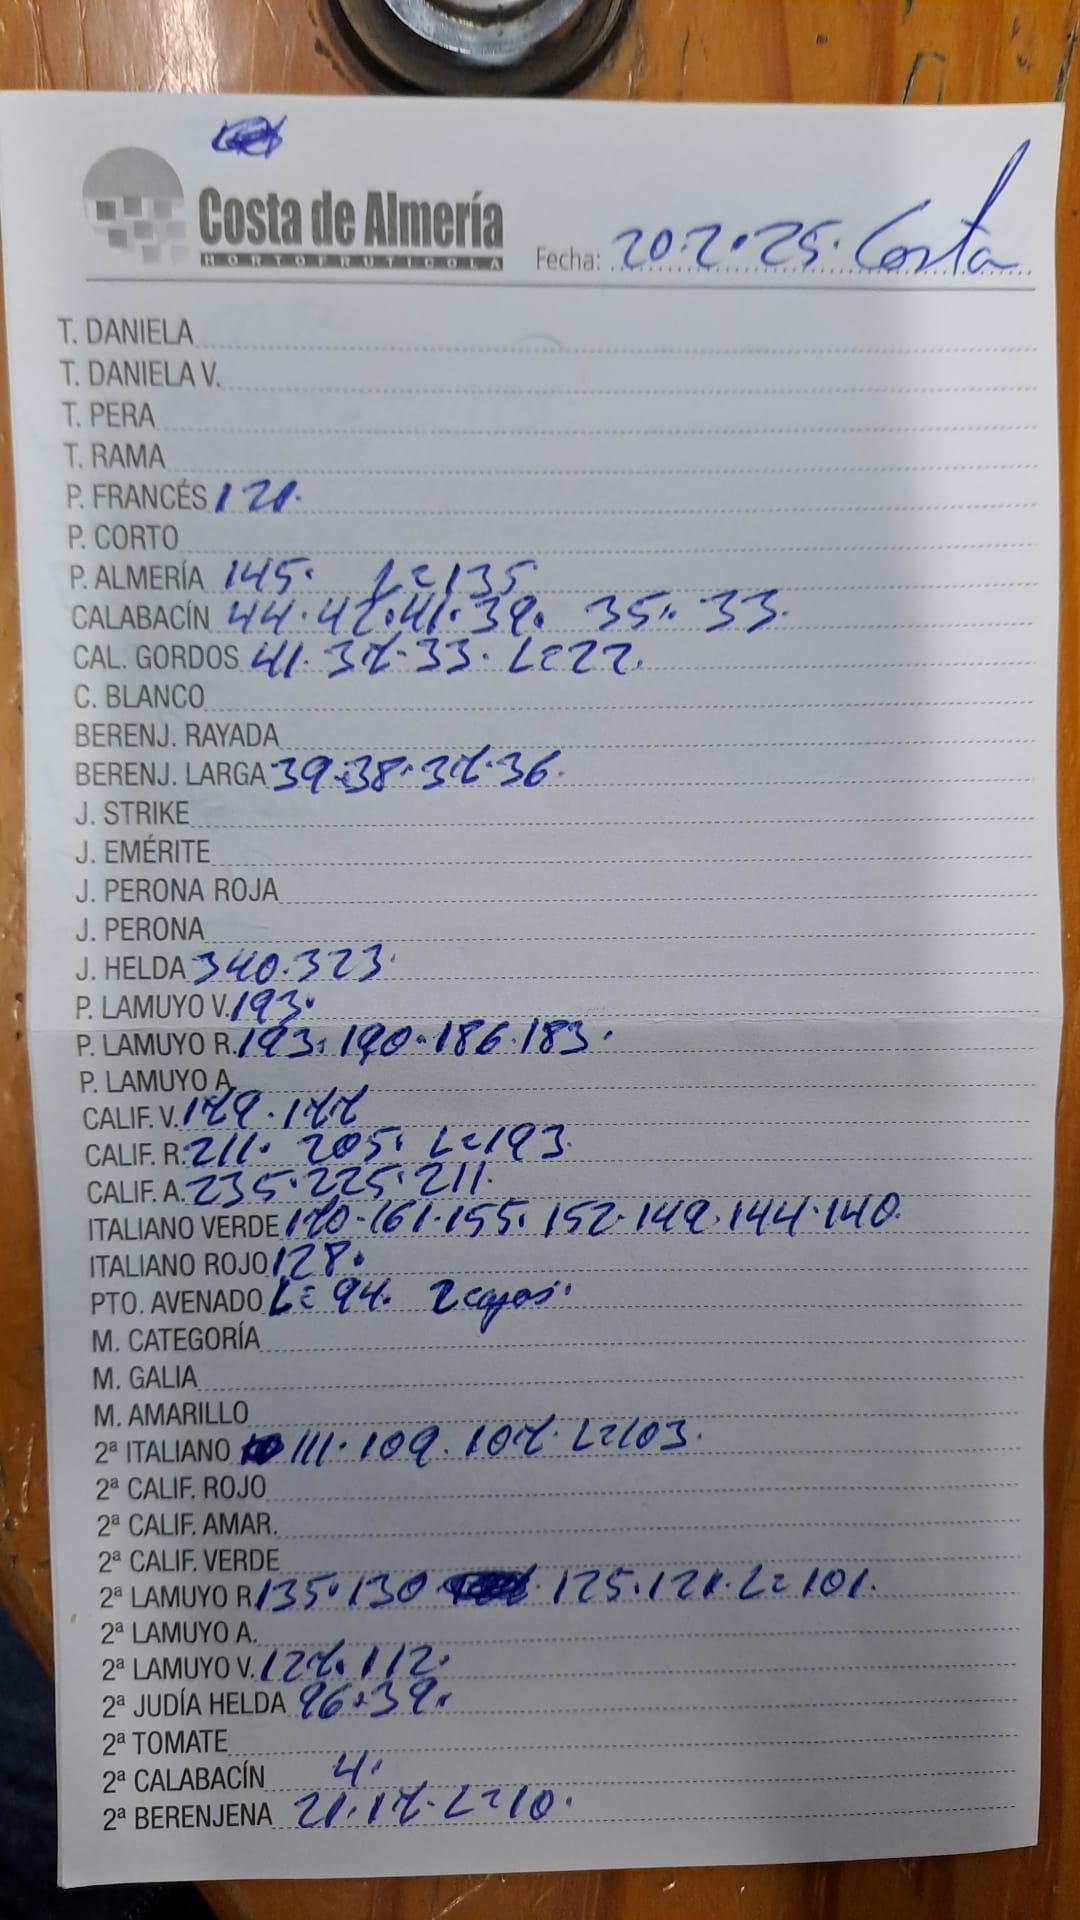 Costa de Almería
HORTOFRUTICOLA
Fecha: 20.2.25. Costa
T. DANIELA
T. DANIELA V.
T. PERA
T. RAMA
P. FRANCÉS 121.
P. CORTO
P. ALMERÍA 145. L=135
CALABACÍN 44.47.41.39. 35. 33.
CAL. GORDOS 41.37.33. L=22.
C. BLANCO
BERENJ. RAYADA
BERENJ. LARGA 39.38.37.36.
J. STRIKE
J. EMÉRITE
J. PERONA ROJA
J. PERONA
J. HELDA 340.323.
P. LAMUYO V. 193.
P. LAMUYO R. 193.190.186.183.
P. LAMUYO A.
CALIF. V. 179.177
CALIF. R. 211. 205. L=193.
CALIF. A. 235.225.211.
ITALIANO VERDE 170.161.155.152.149.144.140.
ITALIANO ROJO 128.
PTO. AVENADO L=94. 2 cajas.
M. CATEGORÍA
M. GALIA
M. AMARILLO
2ª ITALIANO 111.109.107. L=103.
2ª CALIF. ROJO
2ª CALIF. AMAR.
2ª CALIF. VERDE
2ª LAMUYO R. 135.130. 125.121. L=101.
2ª LAMUYO A.
2ª LAMUYO V. 127.112.
2ª JUDÍA HELDA 96.39.
2ª TOMATE
2ª CALABACÍN 4.
2ª BERENJENA 21.17. L=10.